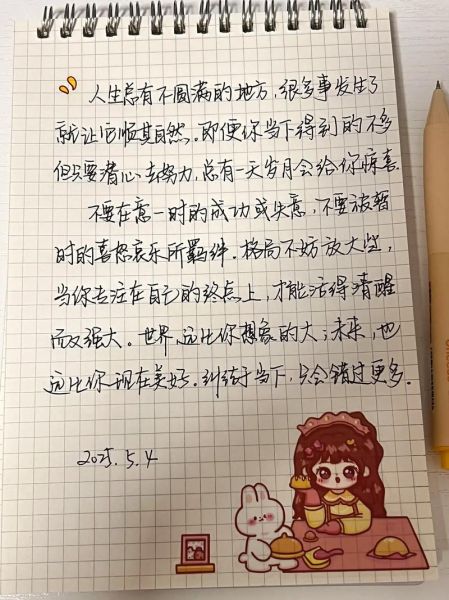 人生总有不圆满的地方，很多事发生了
就让它顺其自然。即便你当下得到的不多
但只要潜心去努力，总有一天岁月会给你惊喜.
不要在意一时的成功或失意，不要被暂
时的喜怒哀乐所羁绊。格局不妨放大些，
当你专注在自己的终点上，才能活得清醒
而又强大。世界，远比你想象的大；未来，也
远比你现在美好。纠结于当下，只会错过更多.
2025.5.4